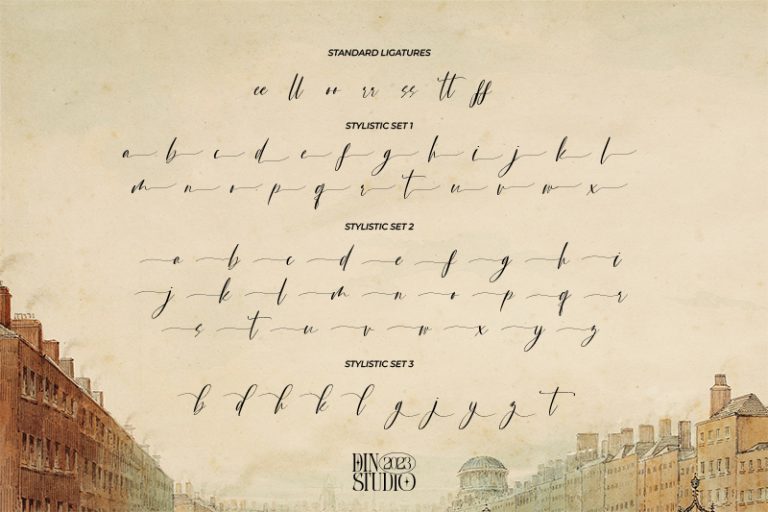 STANDARD LIGATURES
ee ll oo rr ss tt ff
STYLISTIC SET 1
a b c d e f g h i j k l
m n o p q r t u v w x
STYLISTIC SET 2
a b c d e f g h i
j k l m n o p q r
s t u v w x y z
STYLISTIC SET 3
b d h k l g j y z t
DIN 2023
STUDIO